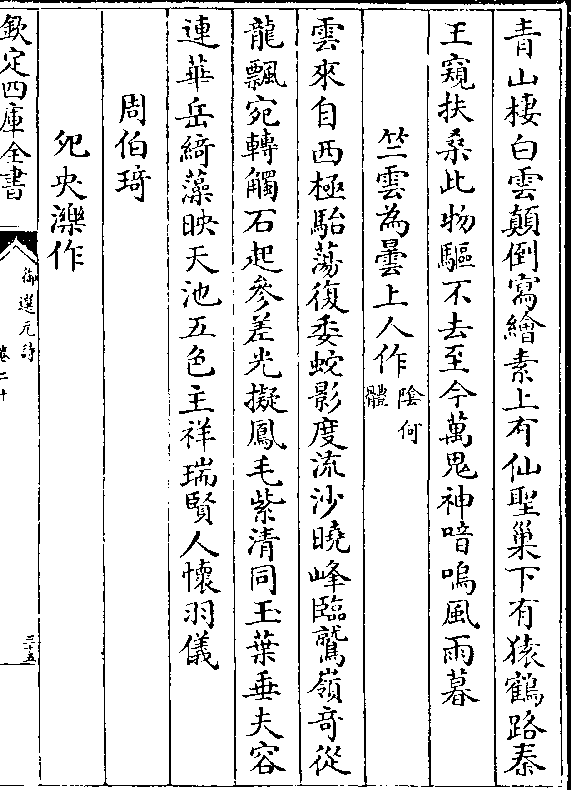 青山棲白雲顛倒寫繪素上有仙聖巢下有猿鶴路秦
王窺扶桑此物驅不去至今萬鬼神喑嗚風雨暮
竺雲為曇上人作陰何體
雲來自西極駘蕩復委蛇影度流沙曉峰臨鷲嶺竒從
龍飄宛轉觸石起參差光擬鳳毛紫清同玉葉垂夫容
連華岳綺藻映天池五色主祥瑞賢人懷羽儀
周伯琦
兇央濼作
欽定四庫全書
御選元詩
卷二十
三十五